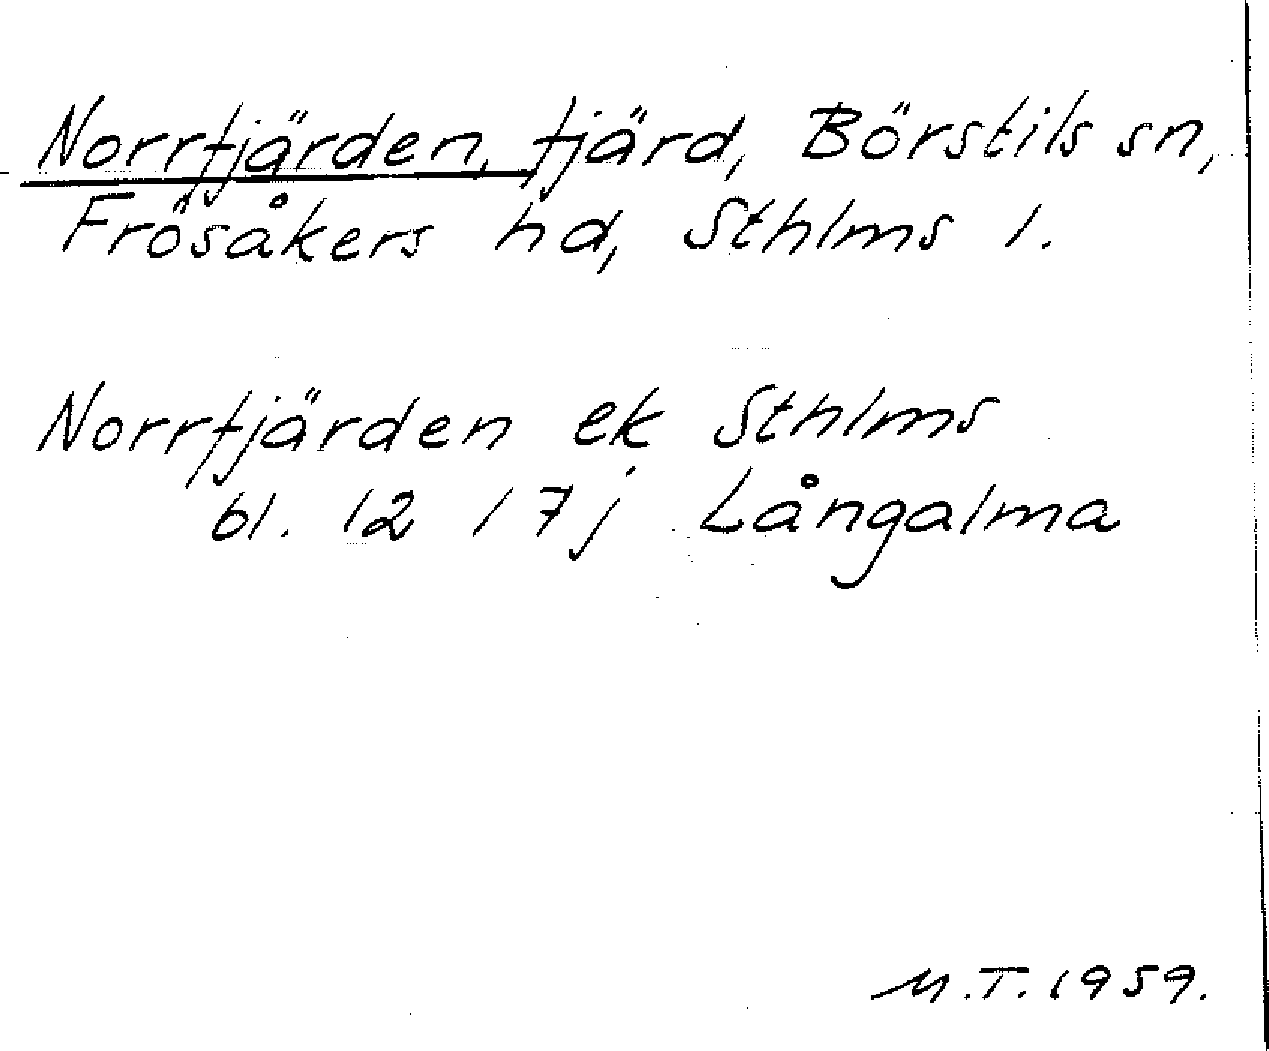 Norrfjärden, fjärd, Börstils sn,
Frösåkers hd, Sthlms l.
Norrfjärden ek Sthlms
bl. 12 17j Långalma
M.T. 1959.